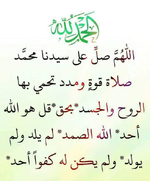 الحمد لله
اللهُمَّ صلِّ على سيدنا محمَّد
صلاة قوةٍ ومدد تحمي بها
الروح والجسد*بحق*قل هو الله
أحد* الله الصمد* لم يلد ولم
يولد* ولم يكن له كفواً أحد*